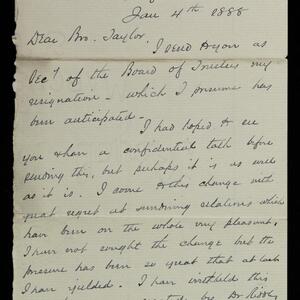 Jan 4th 1888
Dear Bro. Taylor,
I send to you as
Secy of the Board of Trustees my
resignation - which I presume has
been anticipated.
I had hoped to see
you & have a confidential talk before
sending this, but perhaps it is as well
as it is. I come to this change with
great regret at sundering relations which
have been on the whole very pleasant.
I have not sought the change but the
pressure has been so great that at last
I have yielded. I have withheld this
by Dr